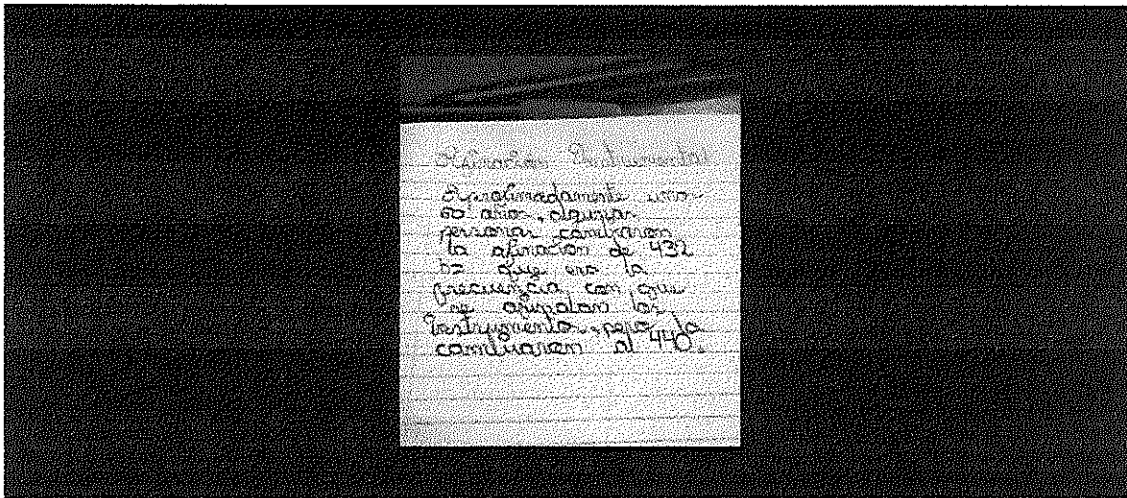 Aproximadamente unos
60 años, algunas
personas cambiaron
la afinación de 432
Hz que era la
frecuencia con que
se afinaban los
instrumentos, pero la
cambiaron al 440.